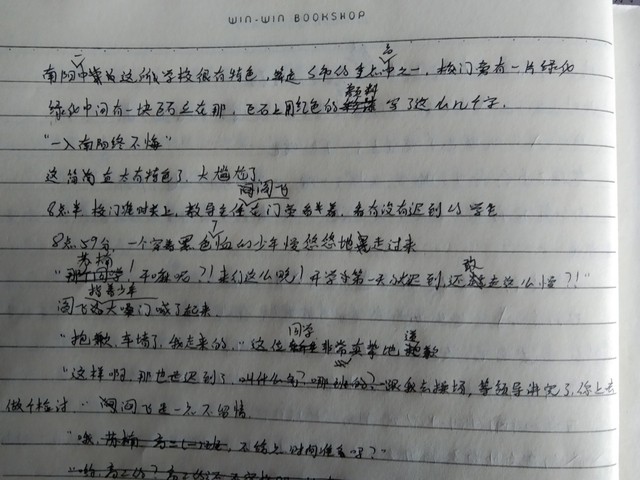 WIN-WIN BOOKSHOP
南阳一中算为这所学校很有特色，算是S市的重点高中之一，校门旁有一片绿化
绿化中间有一块飞石立在那，飞石上用红色的颜料写了这么几个字，
"一入南阳终不悔"
这简为直太有特色了，太尴尬了
8点半校门准时关上，教导主任闫阎飞在门旁看着，看有没有迟到的学生
8点59分，一个穿着黑色T恤的少年慢悠悠地走过来
"苏楠！干嘛呢？！来们这么晚！开学第一天就迟到，还敢走这么慢？！"
阎飞指着少年大嗓门喊了起来
"抱歉，车堵了，我走来的，"这位同学非常真挚地道歉
"这样啊，那也是迟到了，叫什么名？哪班的？跟我去操场，等领导讲完了，你上去
做个检讨，"阎飞是一点不留情
"哦，苏楠 高二(一)班，不给点时间准备吗？"